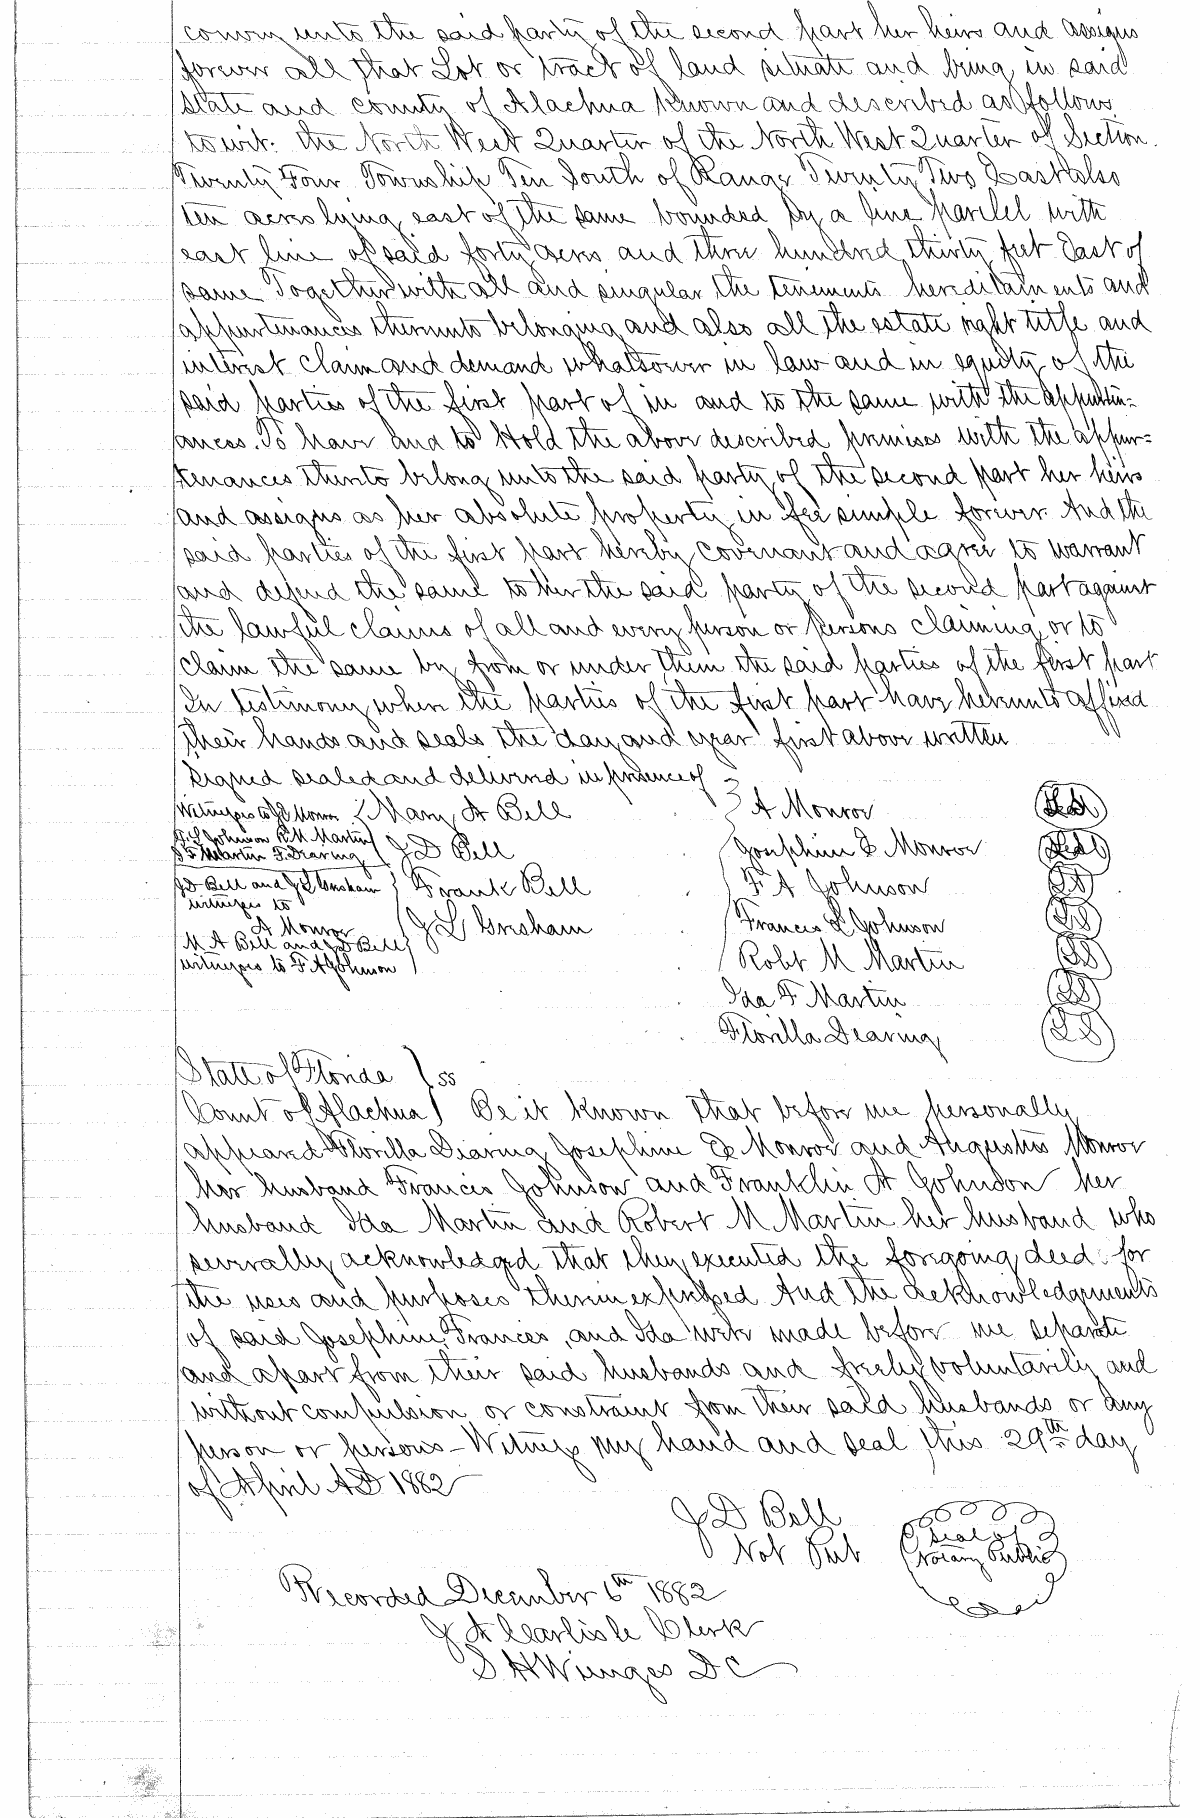 convey unto the said party of the second part her heirs and assigns
forever all that Lot or tract of land situate and being in said
state and county of Alachua known and described as follows
to wit: the North West Quarter of the North West Quarter of Section
Twenty Four Township Ten South of Range Twenty Two East also
ten acres lying east of the same bounded by a line parilel with
east line of said forty acres and three hundred thirty feet East of
same Together with all and singular the tenements hereditaments and
appurtenances thereunto belonging and also all the estate right title and
interest claim and demand whatsoever in law and in equity of the
said parties of the first part of in and to the same with the appurten=
ances. To have and to Hold the above described premises with the appur=
tenances thereto belong unto the said party of the second part her heirs
and assigns as her absolute property in fee simple forever And the
said parties of the first part hereby covenant and agree to warrant
and defend the same to her the said party of the second part against
the lawful claims of all and every person or persons claiming or to
claim the same by from or under them the said parties of the first part
In testimony where the parties of the first part have hereunto affixed
their hands and seals the day and year first above written
Signed sealed and delivered in presence of
Witnesses to J E Monroe Mary A Bell A Monroe
F L Johnson R M Martin
I F Martin F Dearing J D Bell Josephine E Monroe
J D Bell and J L Grisham Frank Bell F A Johnson
witnesses to
A Monroe J L Grisham Francis L Johnson
M A Bell and J D Bell
witnesses to F A Johnson Robt M Martin
Ida F Martin
Florilla Dearing
State of Florida } ss
Count of Alachua } Be it known that before me personally
appeared Florilla Dearing Josephine E Monroe and Augustus Monroe
her husband Frances Johnson and Franklin A Johnson her
husband Ida Martin and Robert M Martin her husband who
severally acknowledged that they executed the foregoing deed for
the uses and purposes therein expressed And the acknowledgements
of said Josephine, Frances, and Ida were made before me separate
and apart from their said husbands and freely voluntarily and
without compulsion or constraint from their said husbands or any
person or persons - Witness my hand and seal this 29th day
of April AD 1882
J D Bell
Not Pub
Seal of
Notary Public
Recorded December 6th 1882
J A Carlisle Clerk
S H Wienges D C